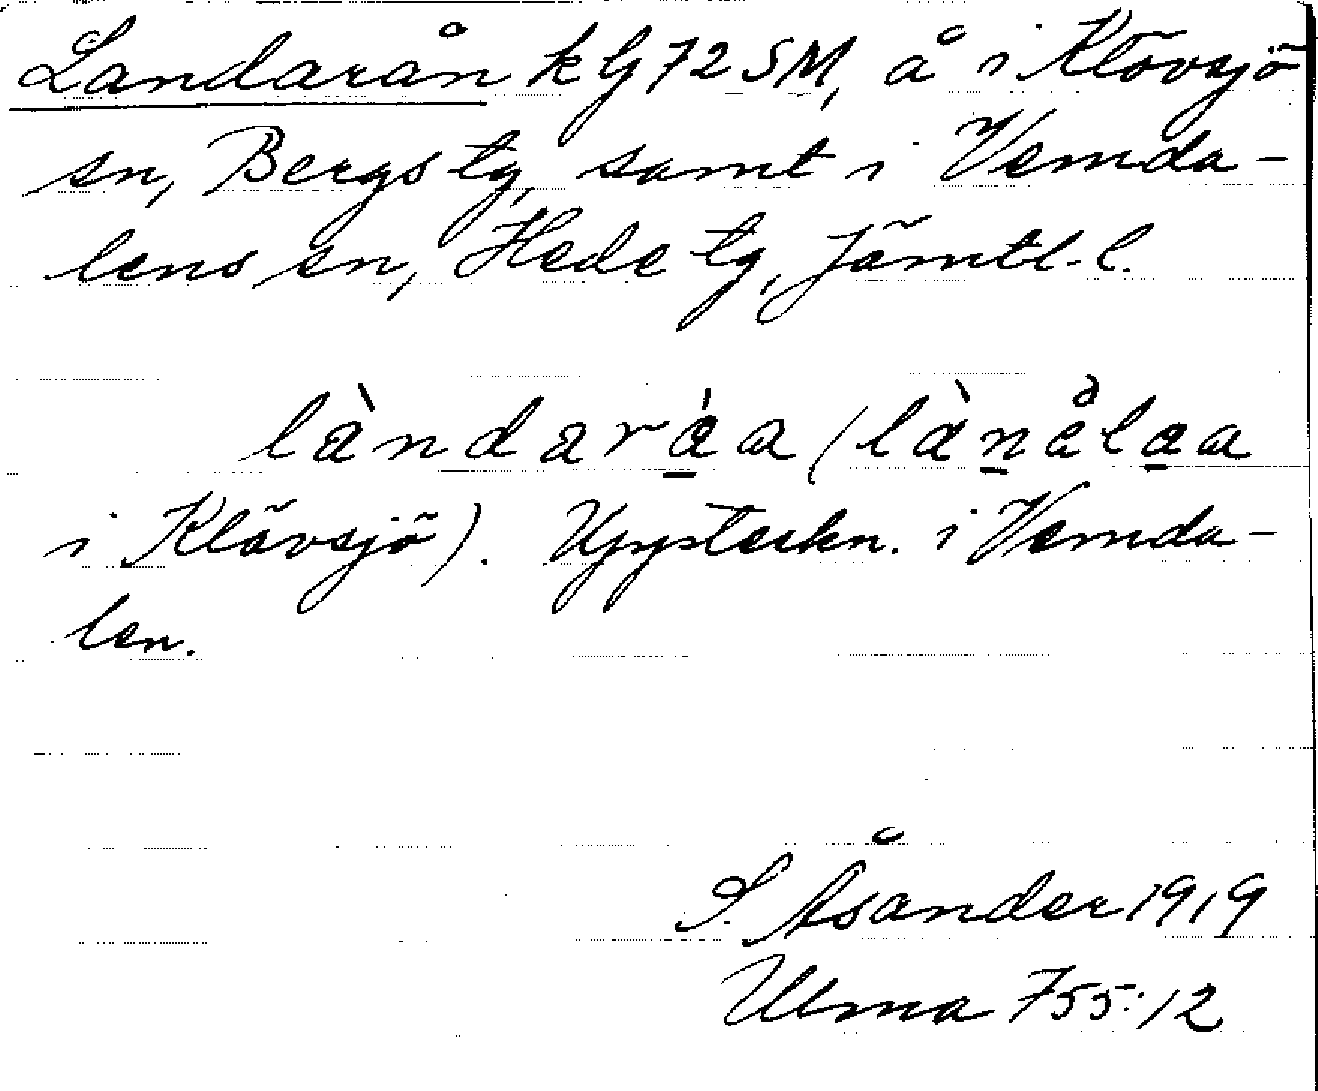 Landarån k G 72 SM, å i Klövsjö
sn, Bergs tg, samt i Vemda-
lens sn, Hede tg, Jämtl. l.
làndaráa (lànålaa
i Klövsjö). Uppteckn. i Vemda-
len.
S. Åsander 1919
Ulma 755:12